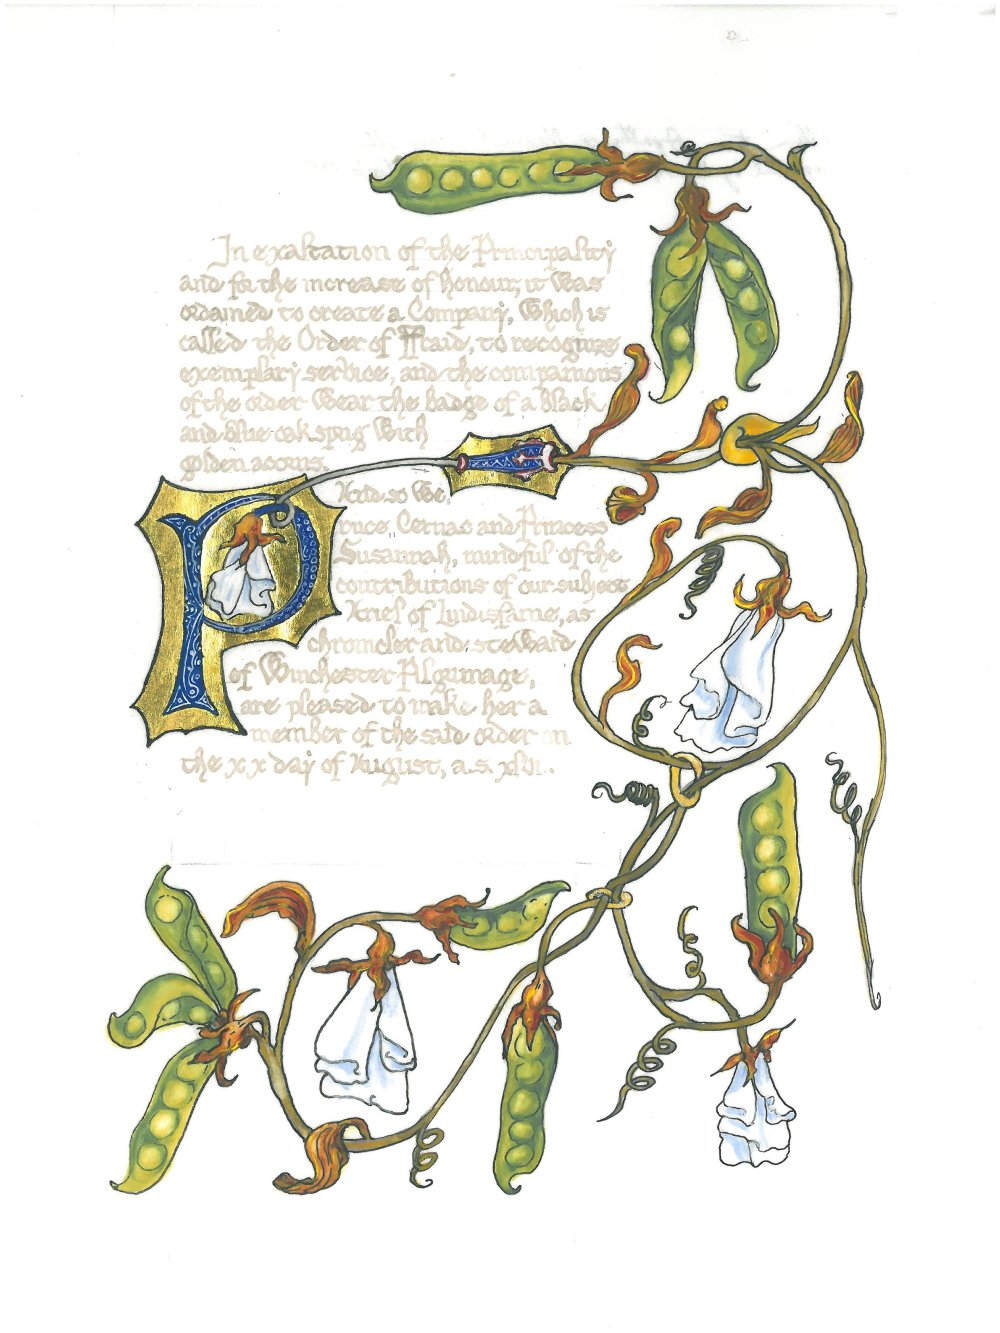 In exaltation of the Principality
and for the increase of honour, it was
ordained to create a Company, which is
called the Order of ffraid, to recognise
exemplary service, and the companions
of the order wear the badge of a black
and blue oak sprig with
golden acorns.
And so we,
Prince Cernac and Princess
Susannah, mindful of the
contributions of our subject
Ariel of Lindisfarne, as
chronicler and steward
of Winchester Pilgrimage,
are pleased to make her a
member of the said order on
the xx day of August, a.s.